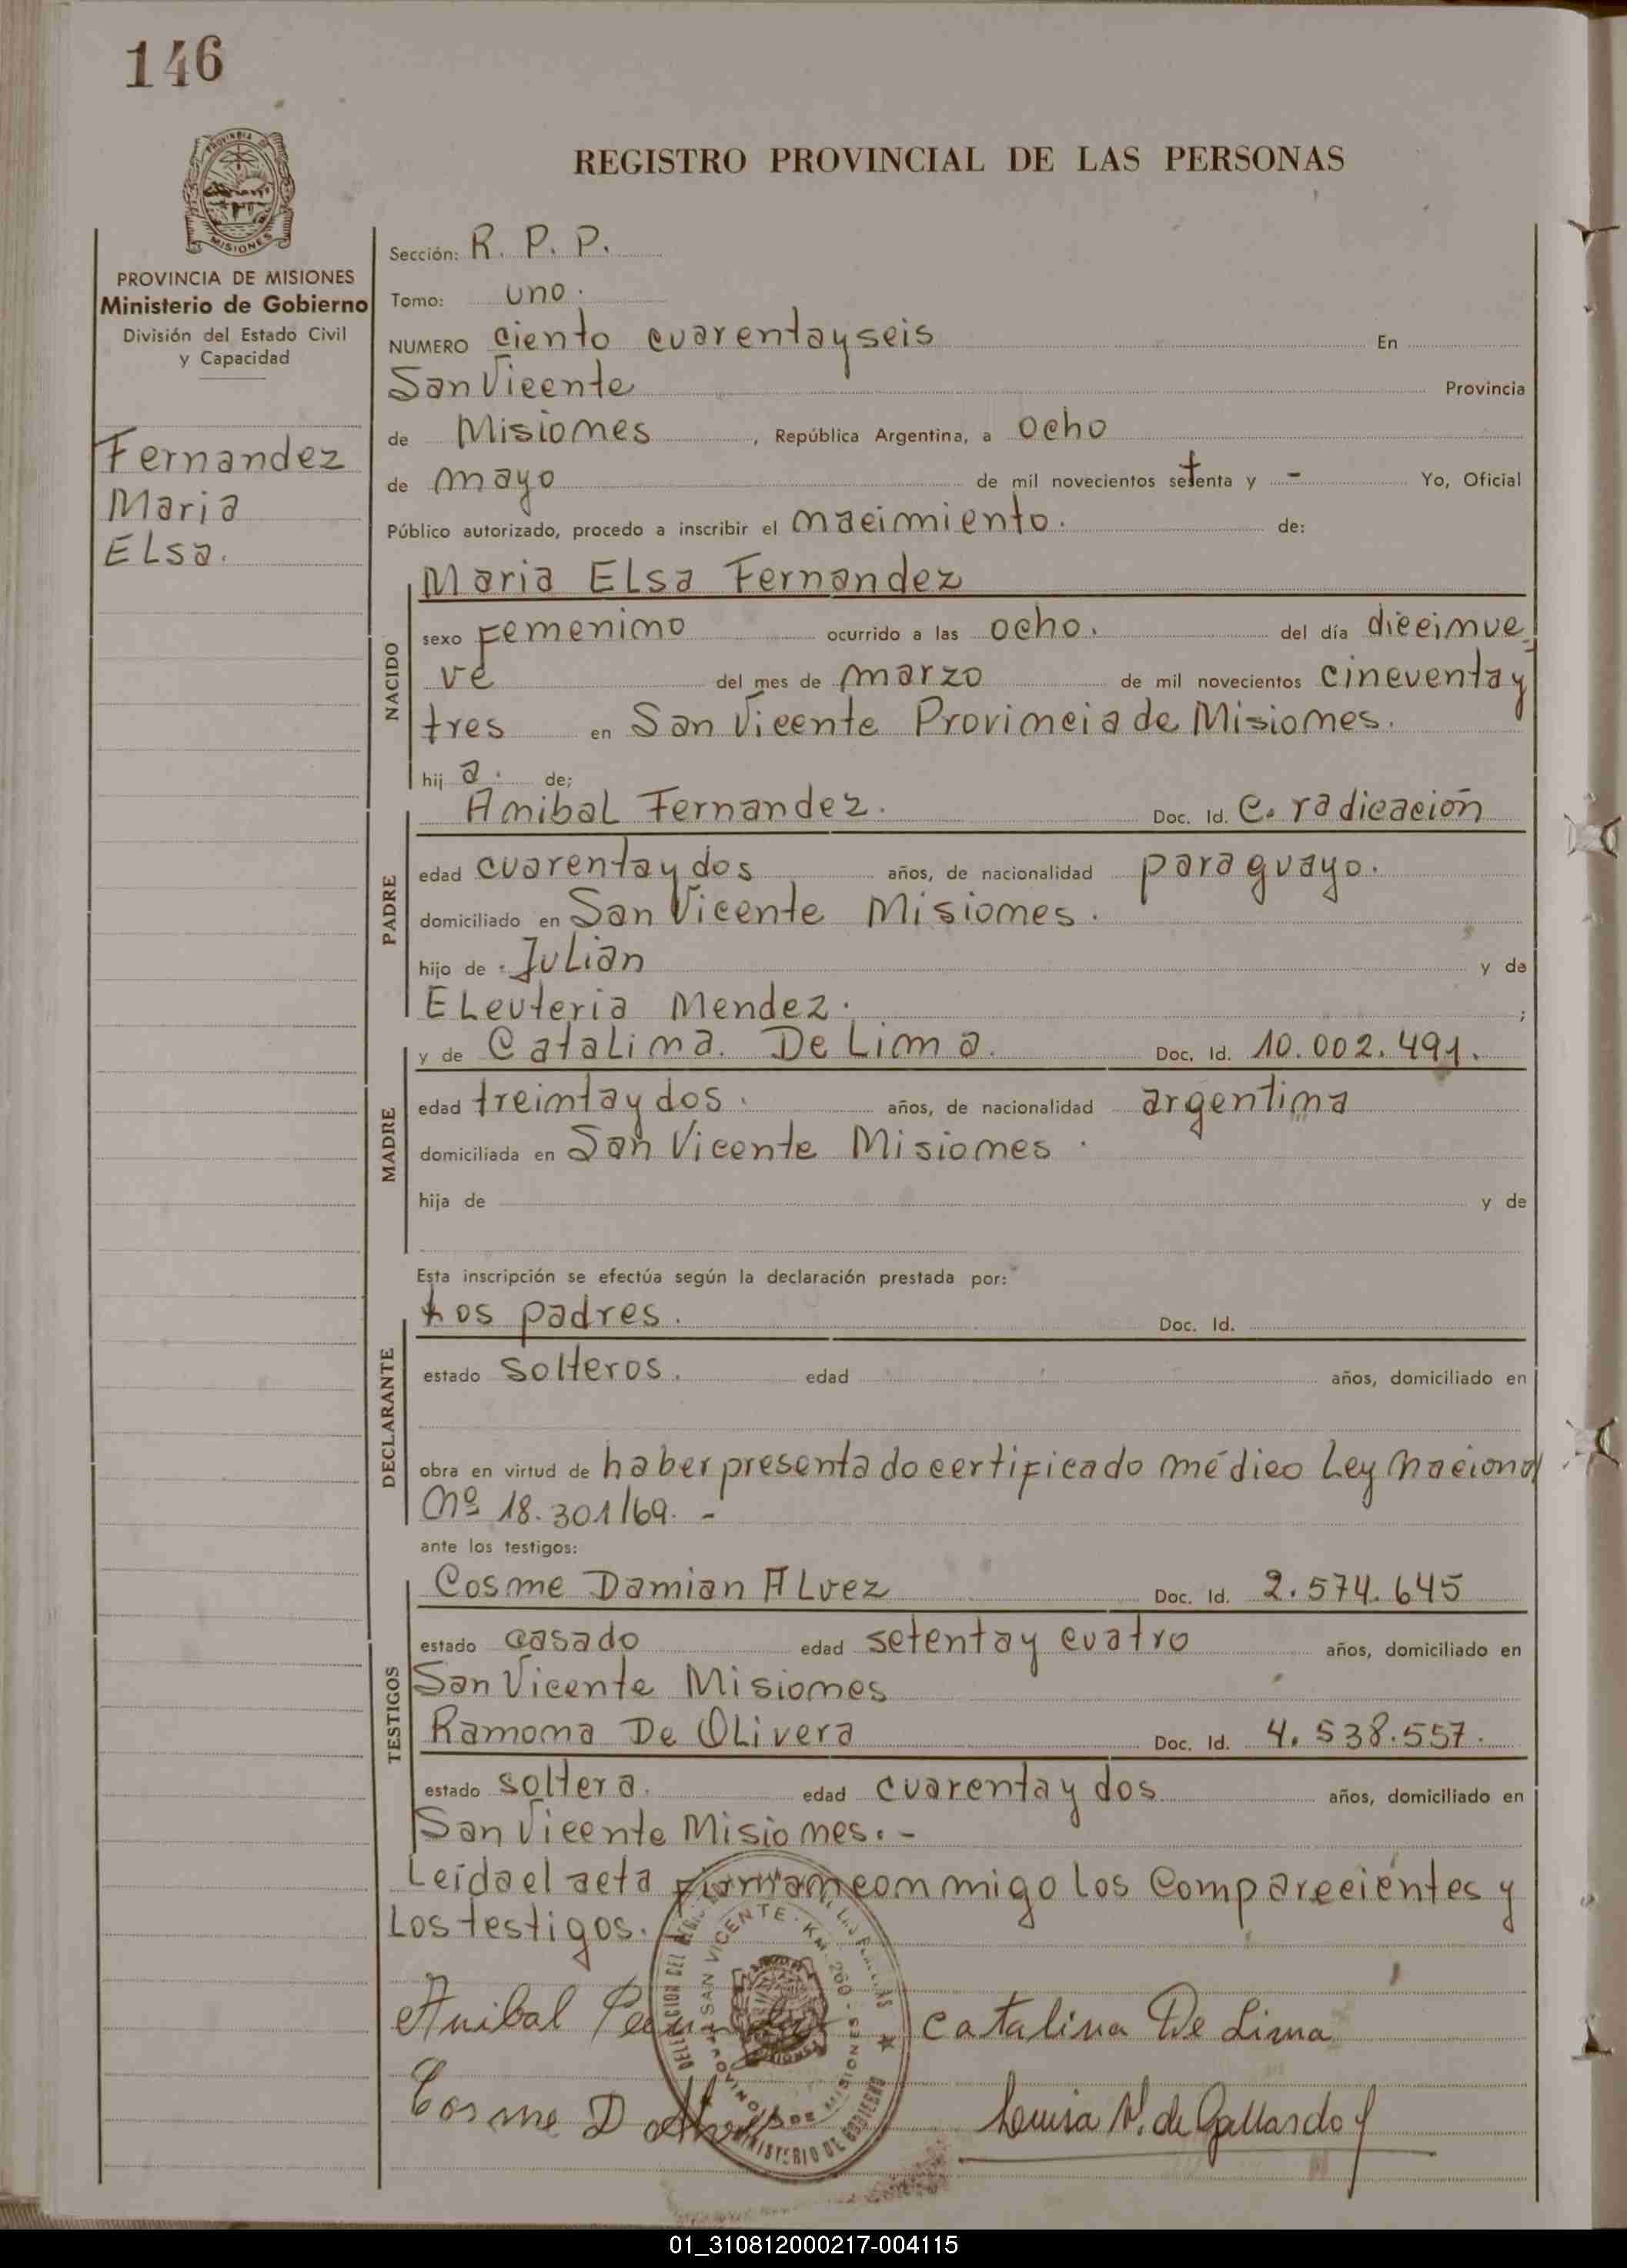 146
PROVINCIA DE
MISIONES
REGISTRO PROVINCIAL DE LAS PERSONAS
PROVINCIA DE MISIONES
Ministerio de Gobierno
División del Estado Civil
y Capacidad
Fernandez
Maria
Elsa.
Sección: R. P. P.
Tomo: uno.
NUMERO ciento cuarentayseis En
San Vicente Provincia
de Misiones, República Argentina, a ocho
de mayo de mil novecientos setenta y - Yo, Oficial
Público autorizado, procedo a inscribir el nacimiento. de:
NACIDO
Maria Elsa Fernandez
sexo Femenino ocurrido a las ocho. del día diecinue-
ve del mes de marzo de mil novecientos cincuentay
tres en San Vicente Provincia de Misiones.
hij a. de;
PADRE
Anibal Fernandez. Doc. Id. C. radicación
edad cuarentaydos años, de nacionalidad paraguayo.
domiciliado en San Vicente Misiones.
hijo de Julian y de
Eleuteria Mendez. ;
MADRE
y de Catalina. De Lima. Doc. Id. 10.002.491.
edad treintaydos. años, de nacionalidad argentina
domiciliada en San Vicente Misiones.
hija de y de
Esta inscripción se efectúa según la declaración prestada por:
DECLARANTE
Los padres. Doc. Id.
estado solteros. edad años, domiciliado en
obra en virtud de haber presentado certificado médico Ley Nacional
Nº 18.301/69. -
ante los testigos:
TESTIGOS
Cosme Damian Alvez Doc. Id. 2.574.645
estado casado edad setentay cuatro años, domiciliado en
San Vicente Misiones
Ramona De Olivera Doc. Id. 4.538.557.
estado soltera. edad cuarentay dos años, domiciliado en
San Vicente Misiones. -
Leída el acta firman conmigo los comparecientes y
los testigos.
DELEGACION DEL
SAN VICENTE - KM. 260 -
PROVINCIA DE MISIONES
MINISTERIO DE GOBIERNO
Anibal Catalina De Lima
Cosme D Alvez Louisa V. de Gallardo
01_310812000217-004115